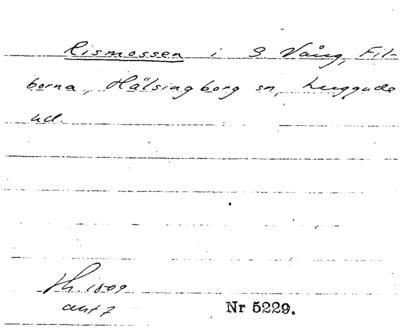 Rismossen i 3 Vång, Fil-
borna, Hälsingborg sn, huggude
ud.
1809
akt 7
Nr 5229.